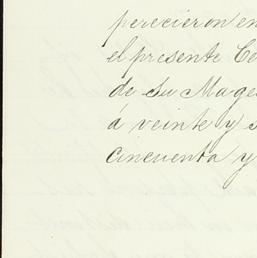 perecieron en
el presente Ce
de Su Mage
á veinte y s
cincuenta y